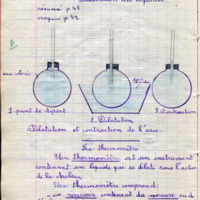 résumé p 48
croquis p 49
1 point de départ
2. Dilatation
3. Contraction
Dilatation et contraction de l'eau.
Le thermomètre
Un thermomètre est un instrument
contenant un liquide qui se dilate sous l'action
de la chaleur
Un thermomètre comprend:
un réservoir contenant du mercure ou de